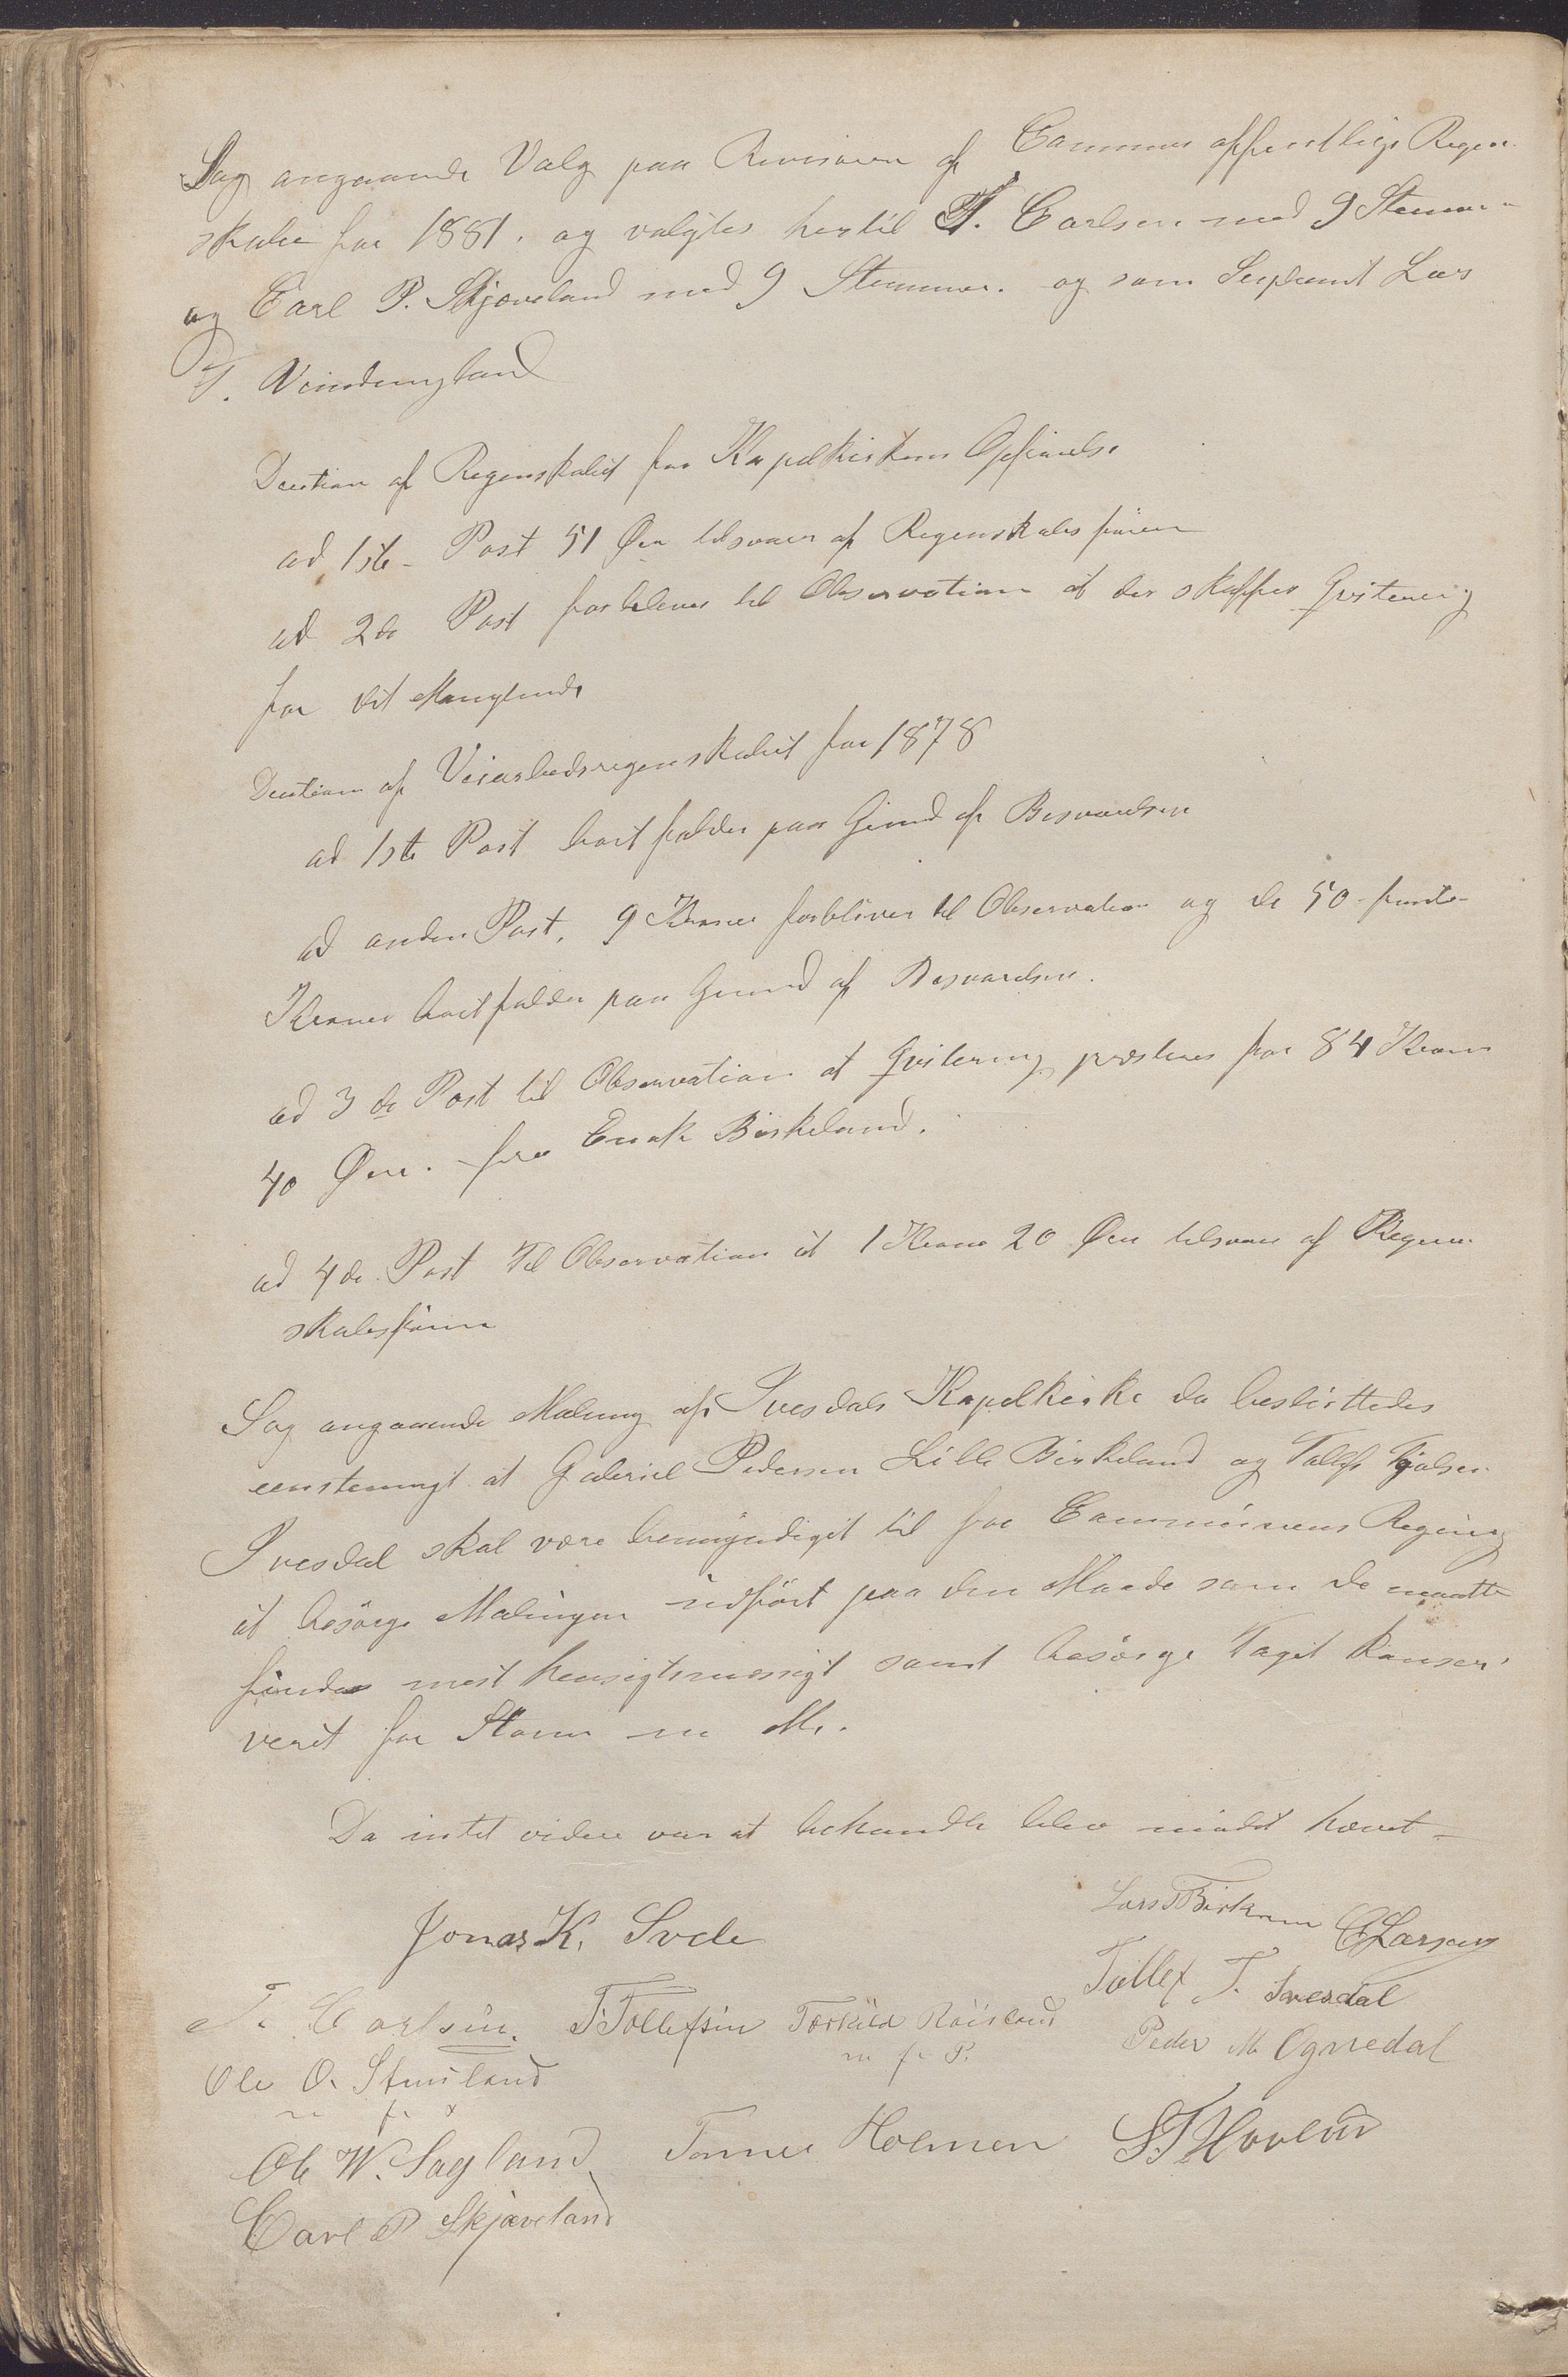 Sag angaaende Valg paa Revisorer af Communes offentlige Regen-
skaber for 1881. og valgtes hertil T. Carlsen med 9 Stemmer
og Carl P. Skjæveland med 9 Stemmer. og som Supleant Lars
T.
Decition af Regnskabet for Kapelkirkens Opførelse
ad 1ste Post 51 Øre tilsvares af Regenskabsføreren
ad 2de Post forbliver til Observation at der skaffes Qvitering
for det Manglende
Decition af Veiarbeidsregenskabet for 1878
ad 1ste Post bortfalder paa Grund af Besvarelsen
ad anden Post. 9 Kroner forbliver til Observation og de 50
Kroner bortfalder paa Grund af Besvarelsen.
ad 3de Post til Observation at Qvitering præsteres for 84 Kroner
40 Øre. fra Enok Birkeland.
ad 4de Post Til Observation at 1 Krone 20 Øre tilsvares af Regen-
skabsføreren
Sag angaaende Maling af Ivesdals Kapelkirke da besluttedes
eenstemigt at Gabriel Pedersen Lille Birkeland og Tollef
Ivesdal skal være bemyndiget til for Communens Regning
at besørge Malingen udført paa den Maade som de maatte
finde mest hensigtsmæssigt samt besørge Taget konser-
veret for Storm m M.
Da intet videre var at behandle blev mødet hævet
Lars Birkrem C Larsen
Jonas K.
Tollef T. Ivesdal
T. Carlsen. T. Tollefsen Torkild Røisland
m f P. Peder M Ognedal
Ole O. Stensland
m f
Ole W. Sagland Tønnes Holmen S T Hovland
Carl P Skjæveland